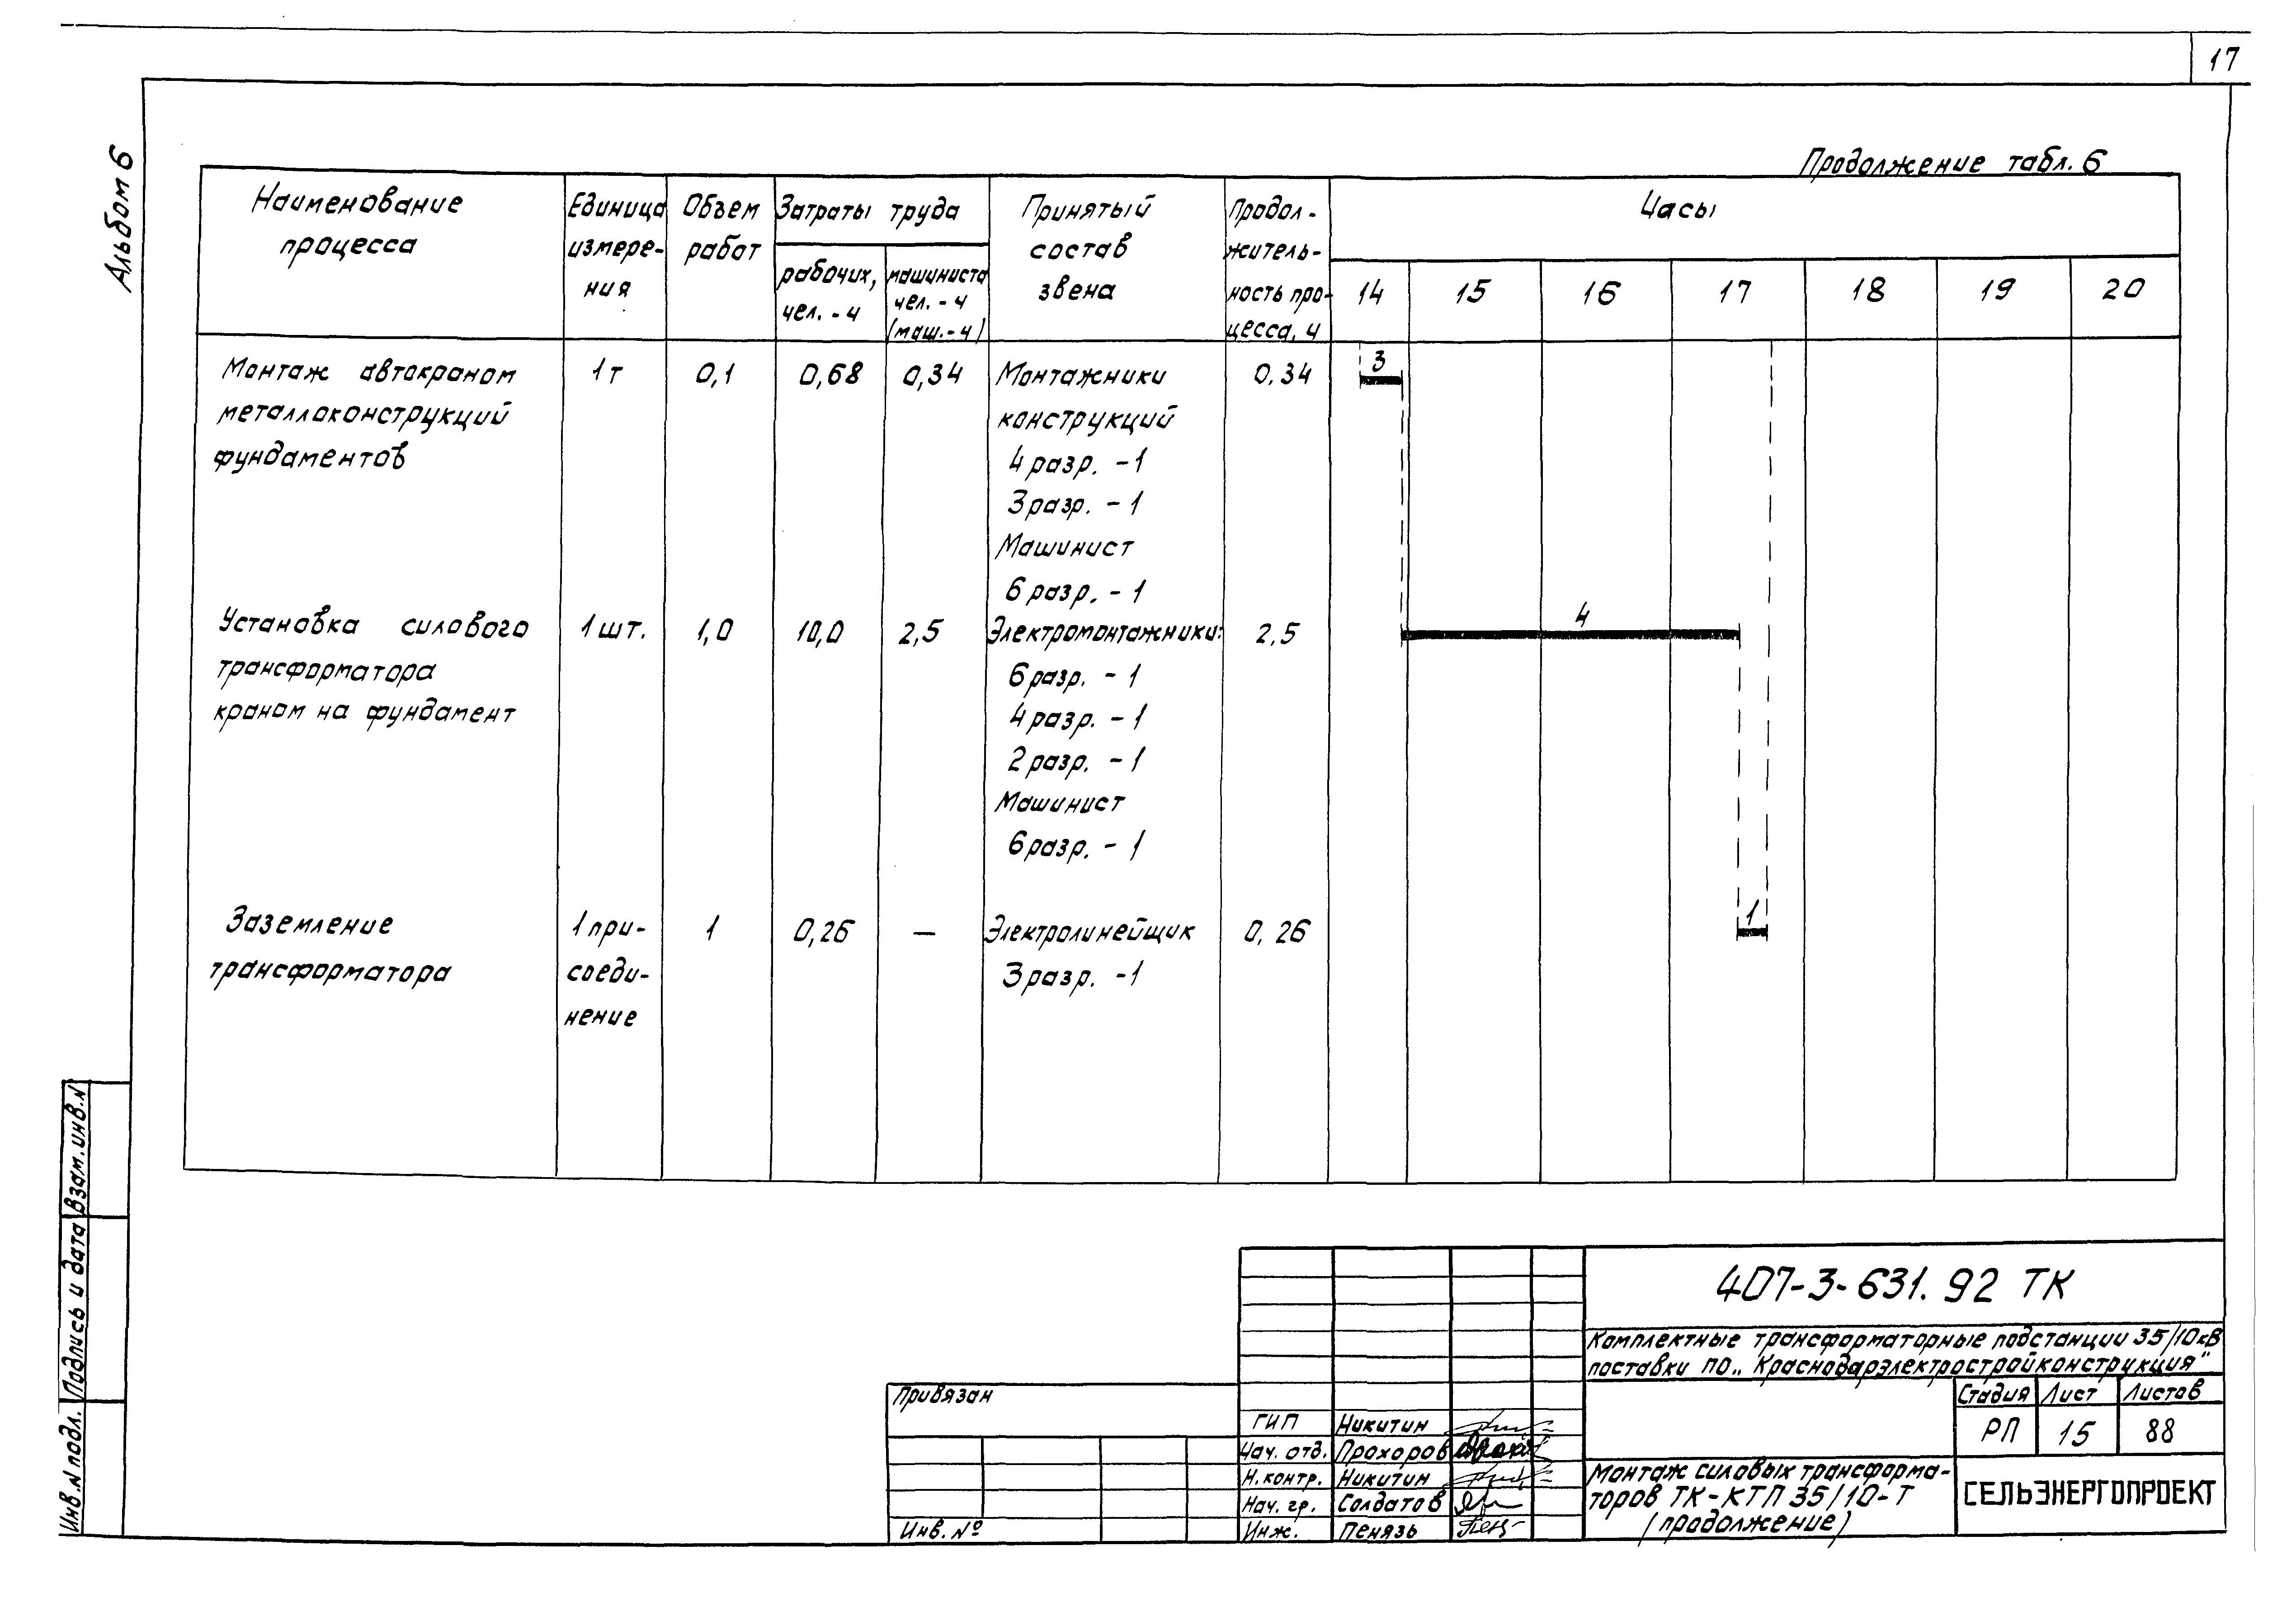 17
Альбом 6
Продолжение табл. 6
Наименование
процесса
Единица
измере-
ния
Объем
работ
Затраты труда
рабочих,
чел. - ч
машиниста
чел. - ч
(маш. - ч)
Принятый
состав
звена
Продол-
житель-
ность про-
цесса, ч
Часы
14 15 16 17 18 19 20
Монтаж автокраном 1 т 0,1 0,68 0,34 Монтажники 0,34 3
металлоконструкций конструкций
фундаментов 4 разр. - 1
3 разр. - 1
Машинист
6 разр. - 1
Установка силового 1 шт. 1,0 10,0 2,5 Электромонтажники: 2,5 4
трансформатора 6 разр. - 1
краном на фундамент 4 разр. - 1
2 разр. - 1
Машинист
6 разр. - 1
Заземление 1 при- 1 0,26 — Электролинейщик 0,26 1
трансформатора соеди- 3 разр. - 1
нение
Взам. инв. N
Подпись и дата
Инв. N подл.
Привязан
Инв. №
ГИП Никитин
Нач. отд. Прохоров
Н. контр. Никитин
Нач. гр. Солдатов
Инж. Пенязь
407-3-631.92 ТК
Комплектные трансформаторные подстанции 35/10кВ
поставки ПО „Краснодарэлектростройконструкция"
Стадия Лист Листов
РП 15 88
Монтаж силовых трансформа-
торов ТК-КТП 35/10-Т
(продолжение)
СЕЛЬЭНЕРГОПРОЕКТ